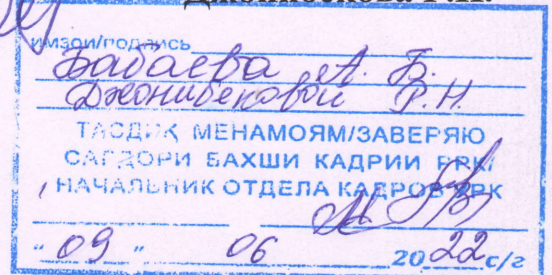 Джонибекова Р.Н.
имзои/подпись
Бабаева А. Б.
Джонибековой Р.Н.
ТАСДИҚ МЕНАМОЯМ/ЗАВЕРЯЮ
САРДОРИ БАХШИ КАДРИИ РРК/
НАЧАЛЬНИК ОТДЕЛА КАДРОВ РРК
" 09 " 06 2022 с/г